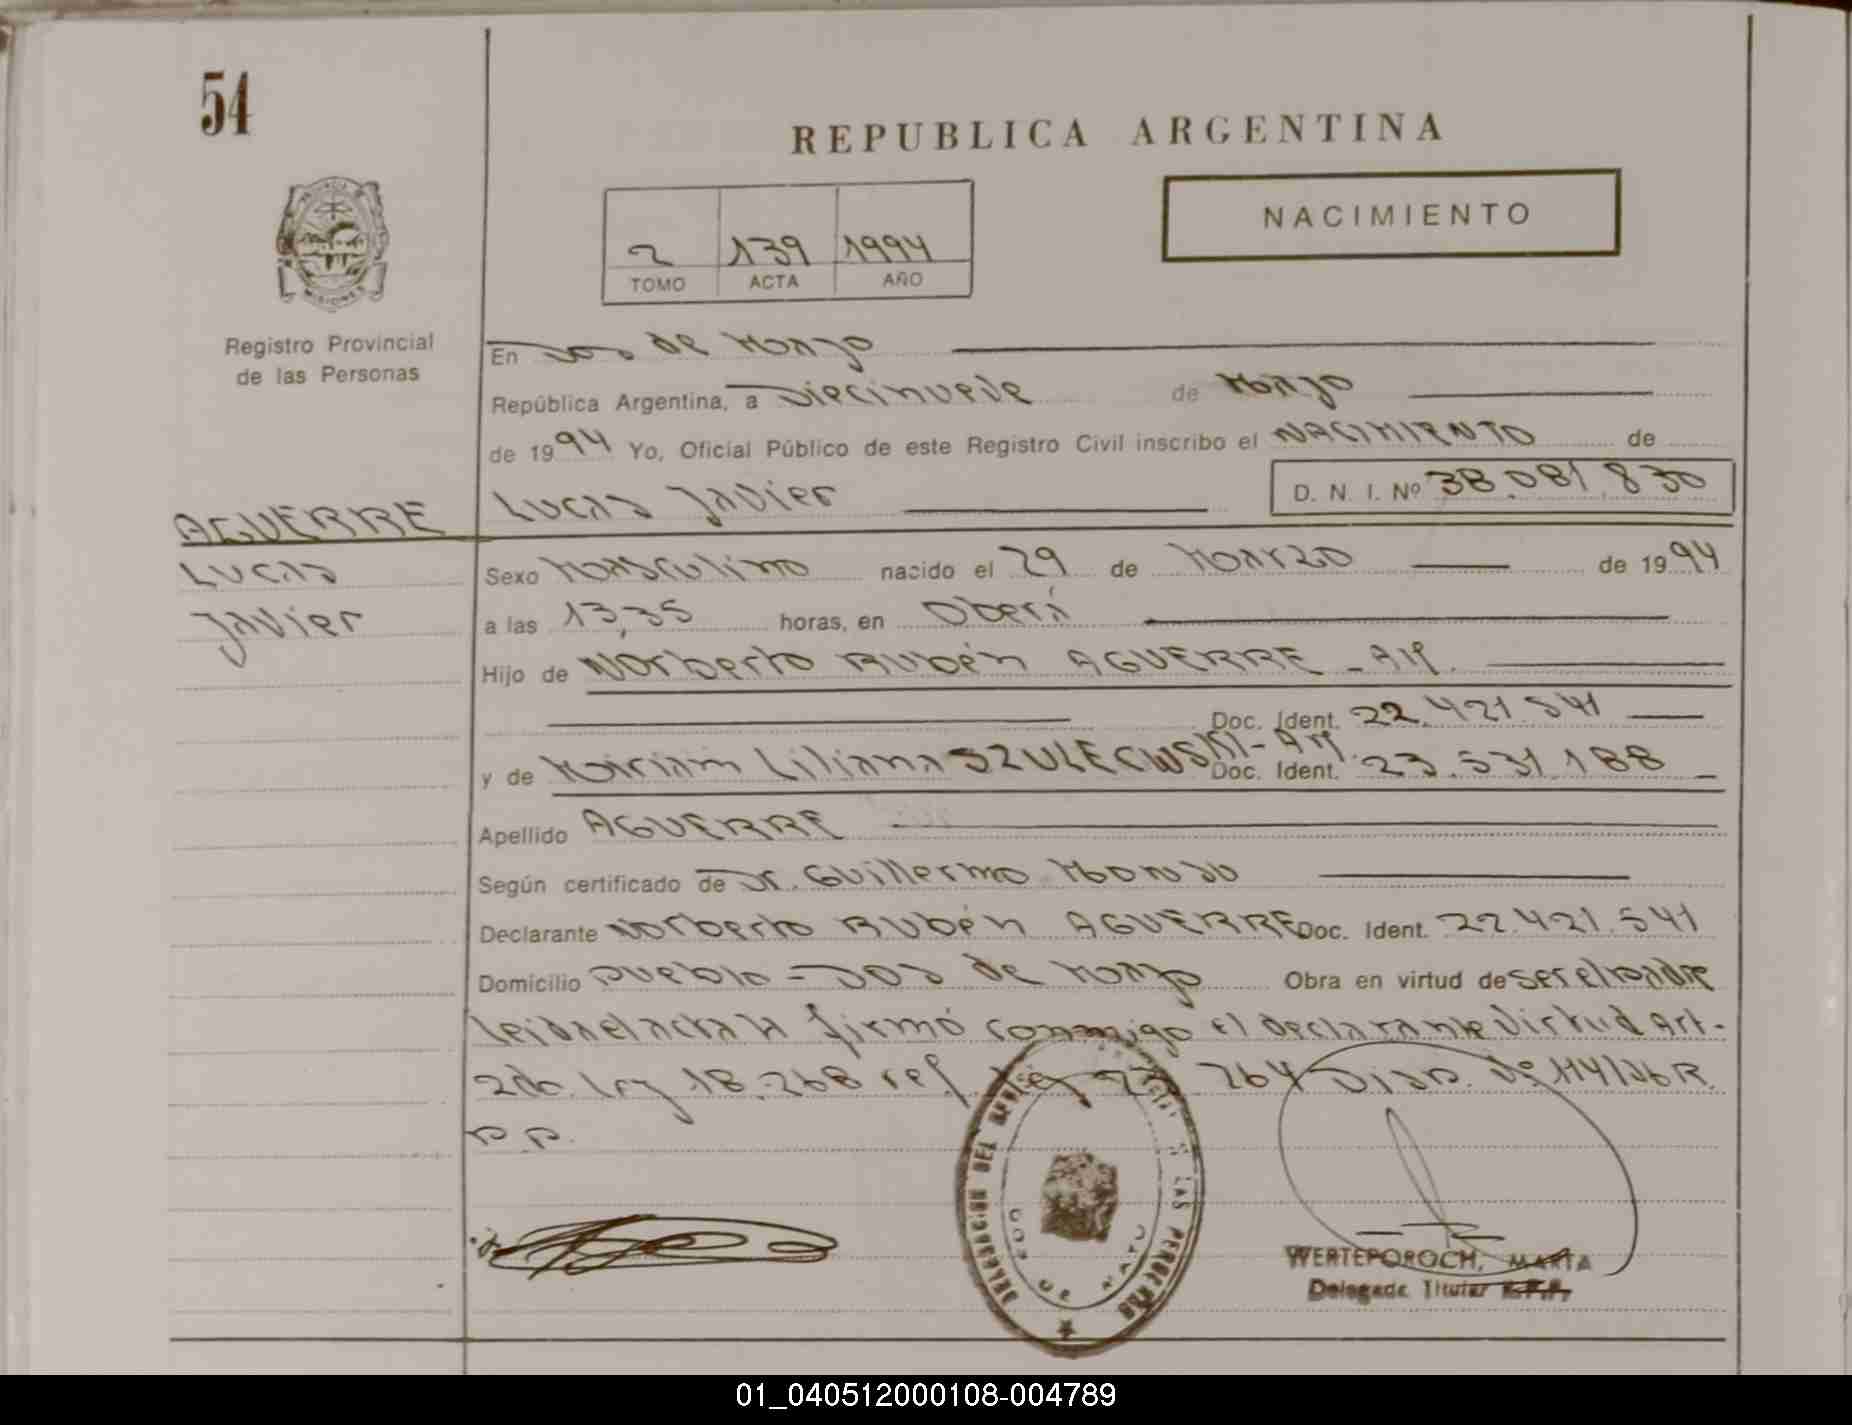 54
REPUBLICA ARGENTINA
NACIMIENTO
2 139 1994
TOMO ACTA AÑO
PROVINCIA DE MISIONES
Registro Provincial
de las Personas
En Dos de Mayo
República Argentina, a Diecinueve de Mayo
de 1994 Yo, Oficial Público de este Registro Civil inscribo el NACIMIENTO de
D. N. I. Nº 38.081.830
AGUERRE Lucas Javier
Lucas
Javier
Sexo Masculino nacido el 29 de Marzo de 1994
a las 13,35 horas, en Oberá
Hijo de Norberto Rubén AGUERRE - Arg.
Doc. Ident. 22.421.541
y de Miriam Liliana SZULECWSKI - Arg.
Doc. Ident. 23.531.188
Apellido AGUERRE
Según certificado de Dr. Guillermo
Declarante Norberto Rubén AGUERRE Doc. Ident. 22.421.541
Domicilio Pueblo - Dos de Mayo Obra en virtud de ser el padre
leida el acta la firmó conmigo el declarante Virtud Art.
2do. Ley 18.268 ref. Ley 264 Disp. R.
P.P.
DELEGACION DEL REGISTRO DE LAS PERSONAS
DOS DE MAYO
WERTEPOROCH, MARTA
Delegada Titular
01_040512000108-004789